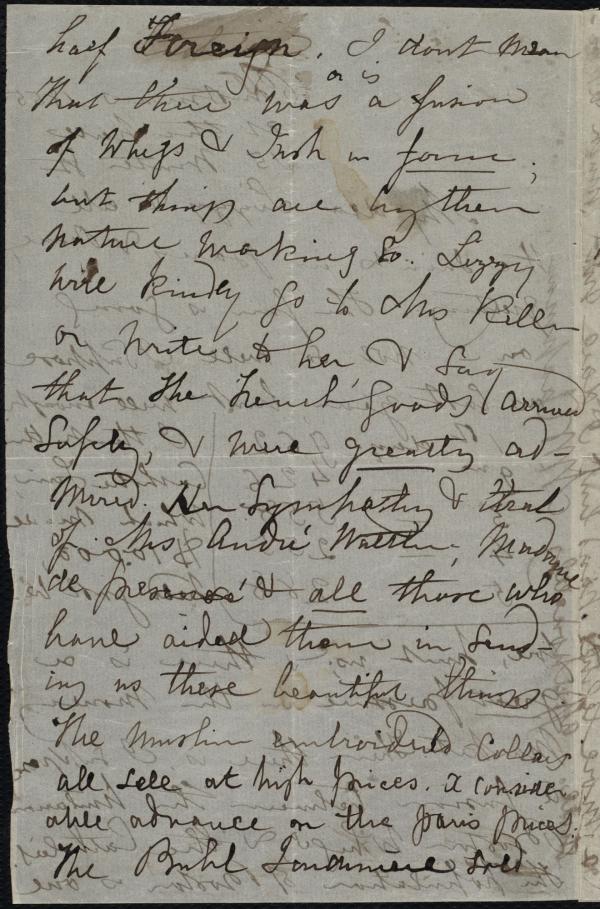 half Foreign. I don't mean
or is
that there was a fusion
of Whigs & Irish in form;
but things are by their
nature working so. Lizzy
will kindly go to Mrs Killer
or write to her & say
that the French goods arrived
safely, & were greatly ad-
mired, Her Sympathy & that
of Mrs André Walther, Madame
de & all those who
have aided them in send-
ing us these beautiful things
The muslin embroidered collars
all sell at high prices. A consider
able advance on the Paris prices.
The Buhl Jardiniere sold